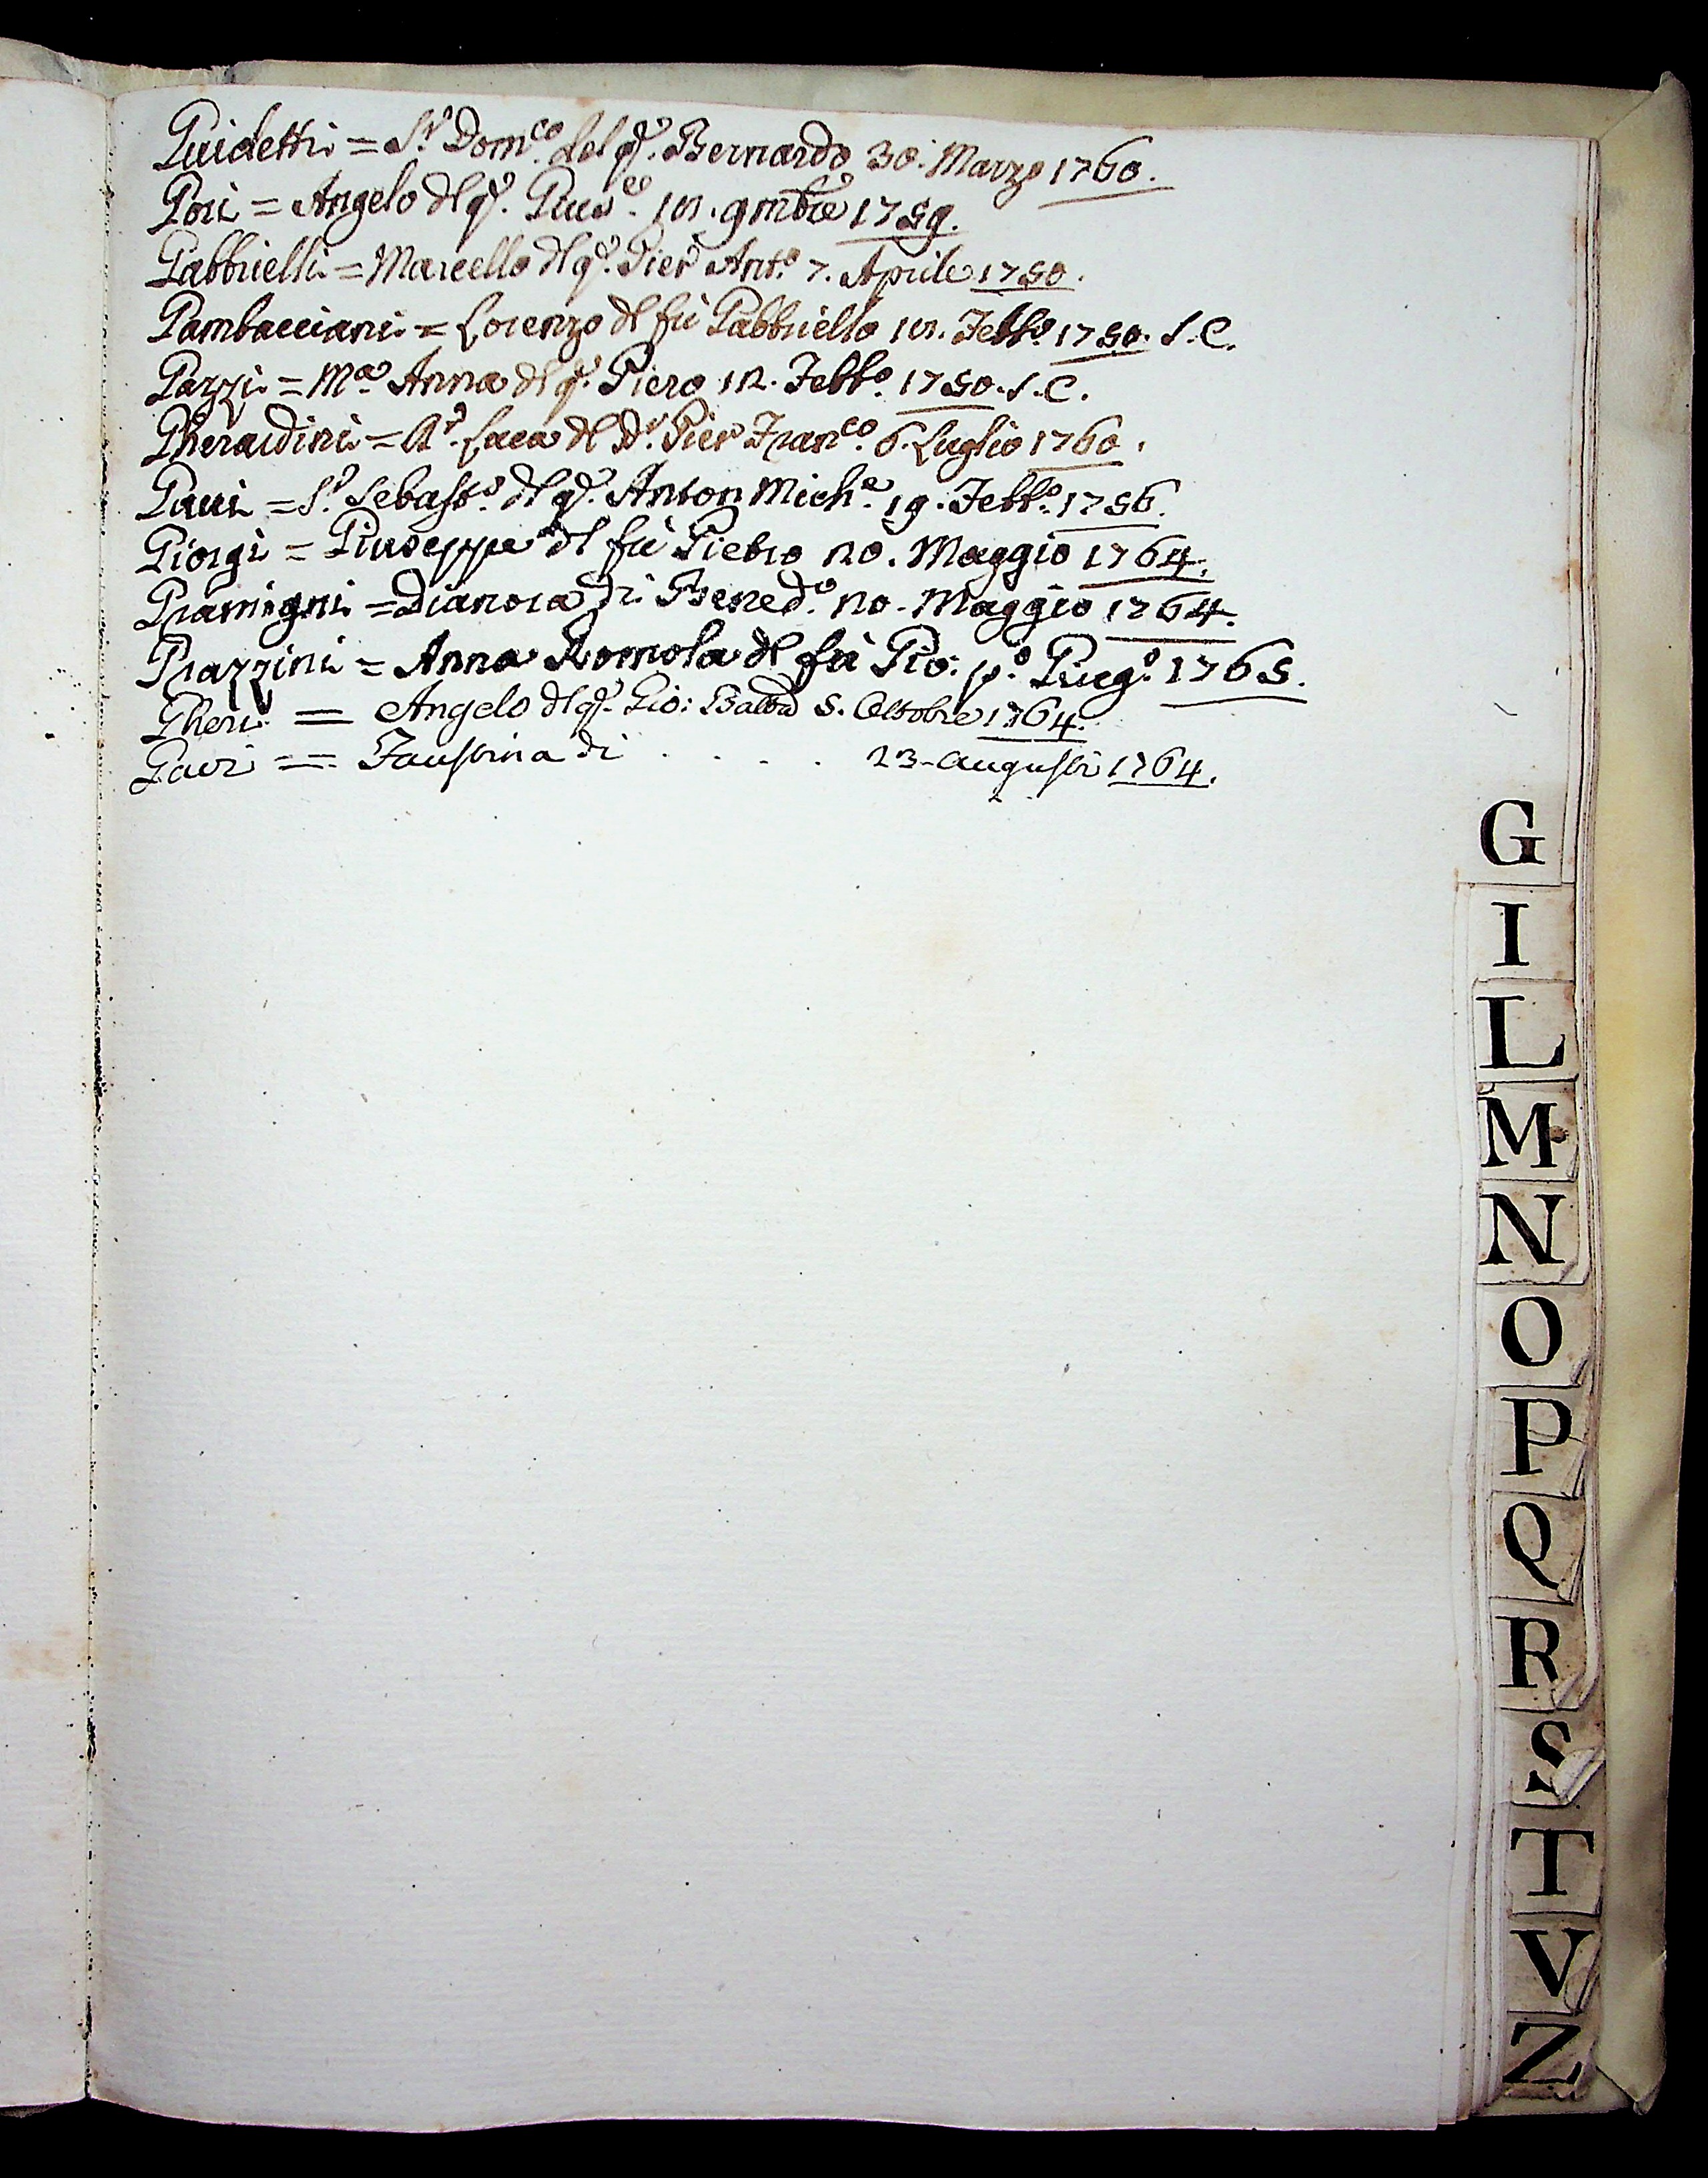 Guidetti = S.r Dom.co del q.m Bernardo 30. Marzo 1760.
Gori = Angelo dl q.m Gius.e 9mbre 1759.
Gabbrielli = Marcello dl q.m Pier Ant.o 7. Aprile 1750.
Gambacciani = Lorenzo dl fù Gabbriello Febb.o 1750. S.C.
Gazzi = M.a Anna dl q.m Piero 12. Febb.o 1750. S.C.
Gherardini = Luca dl D.r Pier Fran.co 6. Luglio 1760.
= S.r Sebast.o dl q.m Anton Mich.e 19. Febb.o 1756.
Giorgi = Giuseppe dl fù Pietro 20. Maggio 1764.
Gramigni = Dianora di Bened.o 20. Maggio 1764.
Grazzini = Anna Romola dl fù Gio. p.o Giug.o 1765.
Gheri = Angelo dl q.m Gio: Batta 5. Ottobre 1764.
= Faustina di . . . . 23. Augusti 1764.
G
I
L
M
N
O
P
Q
R
S
T
V
Z